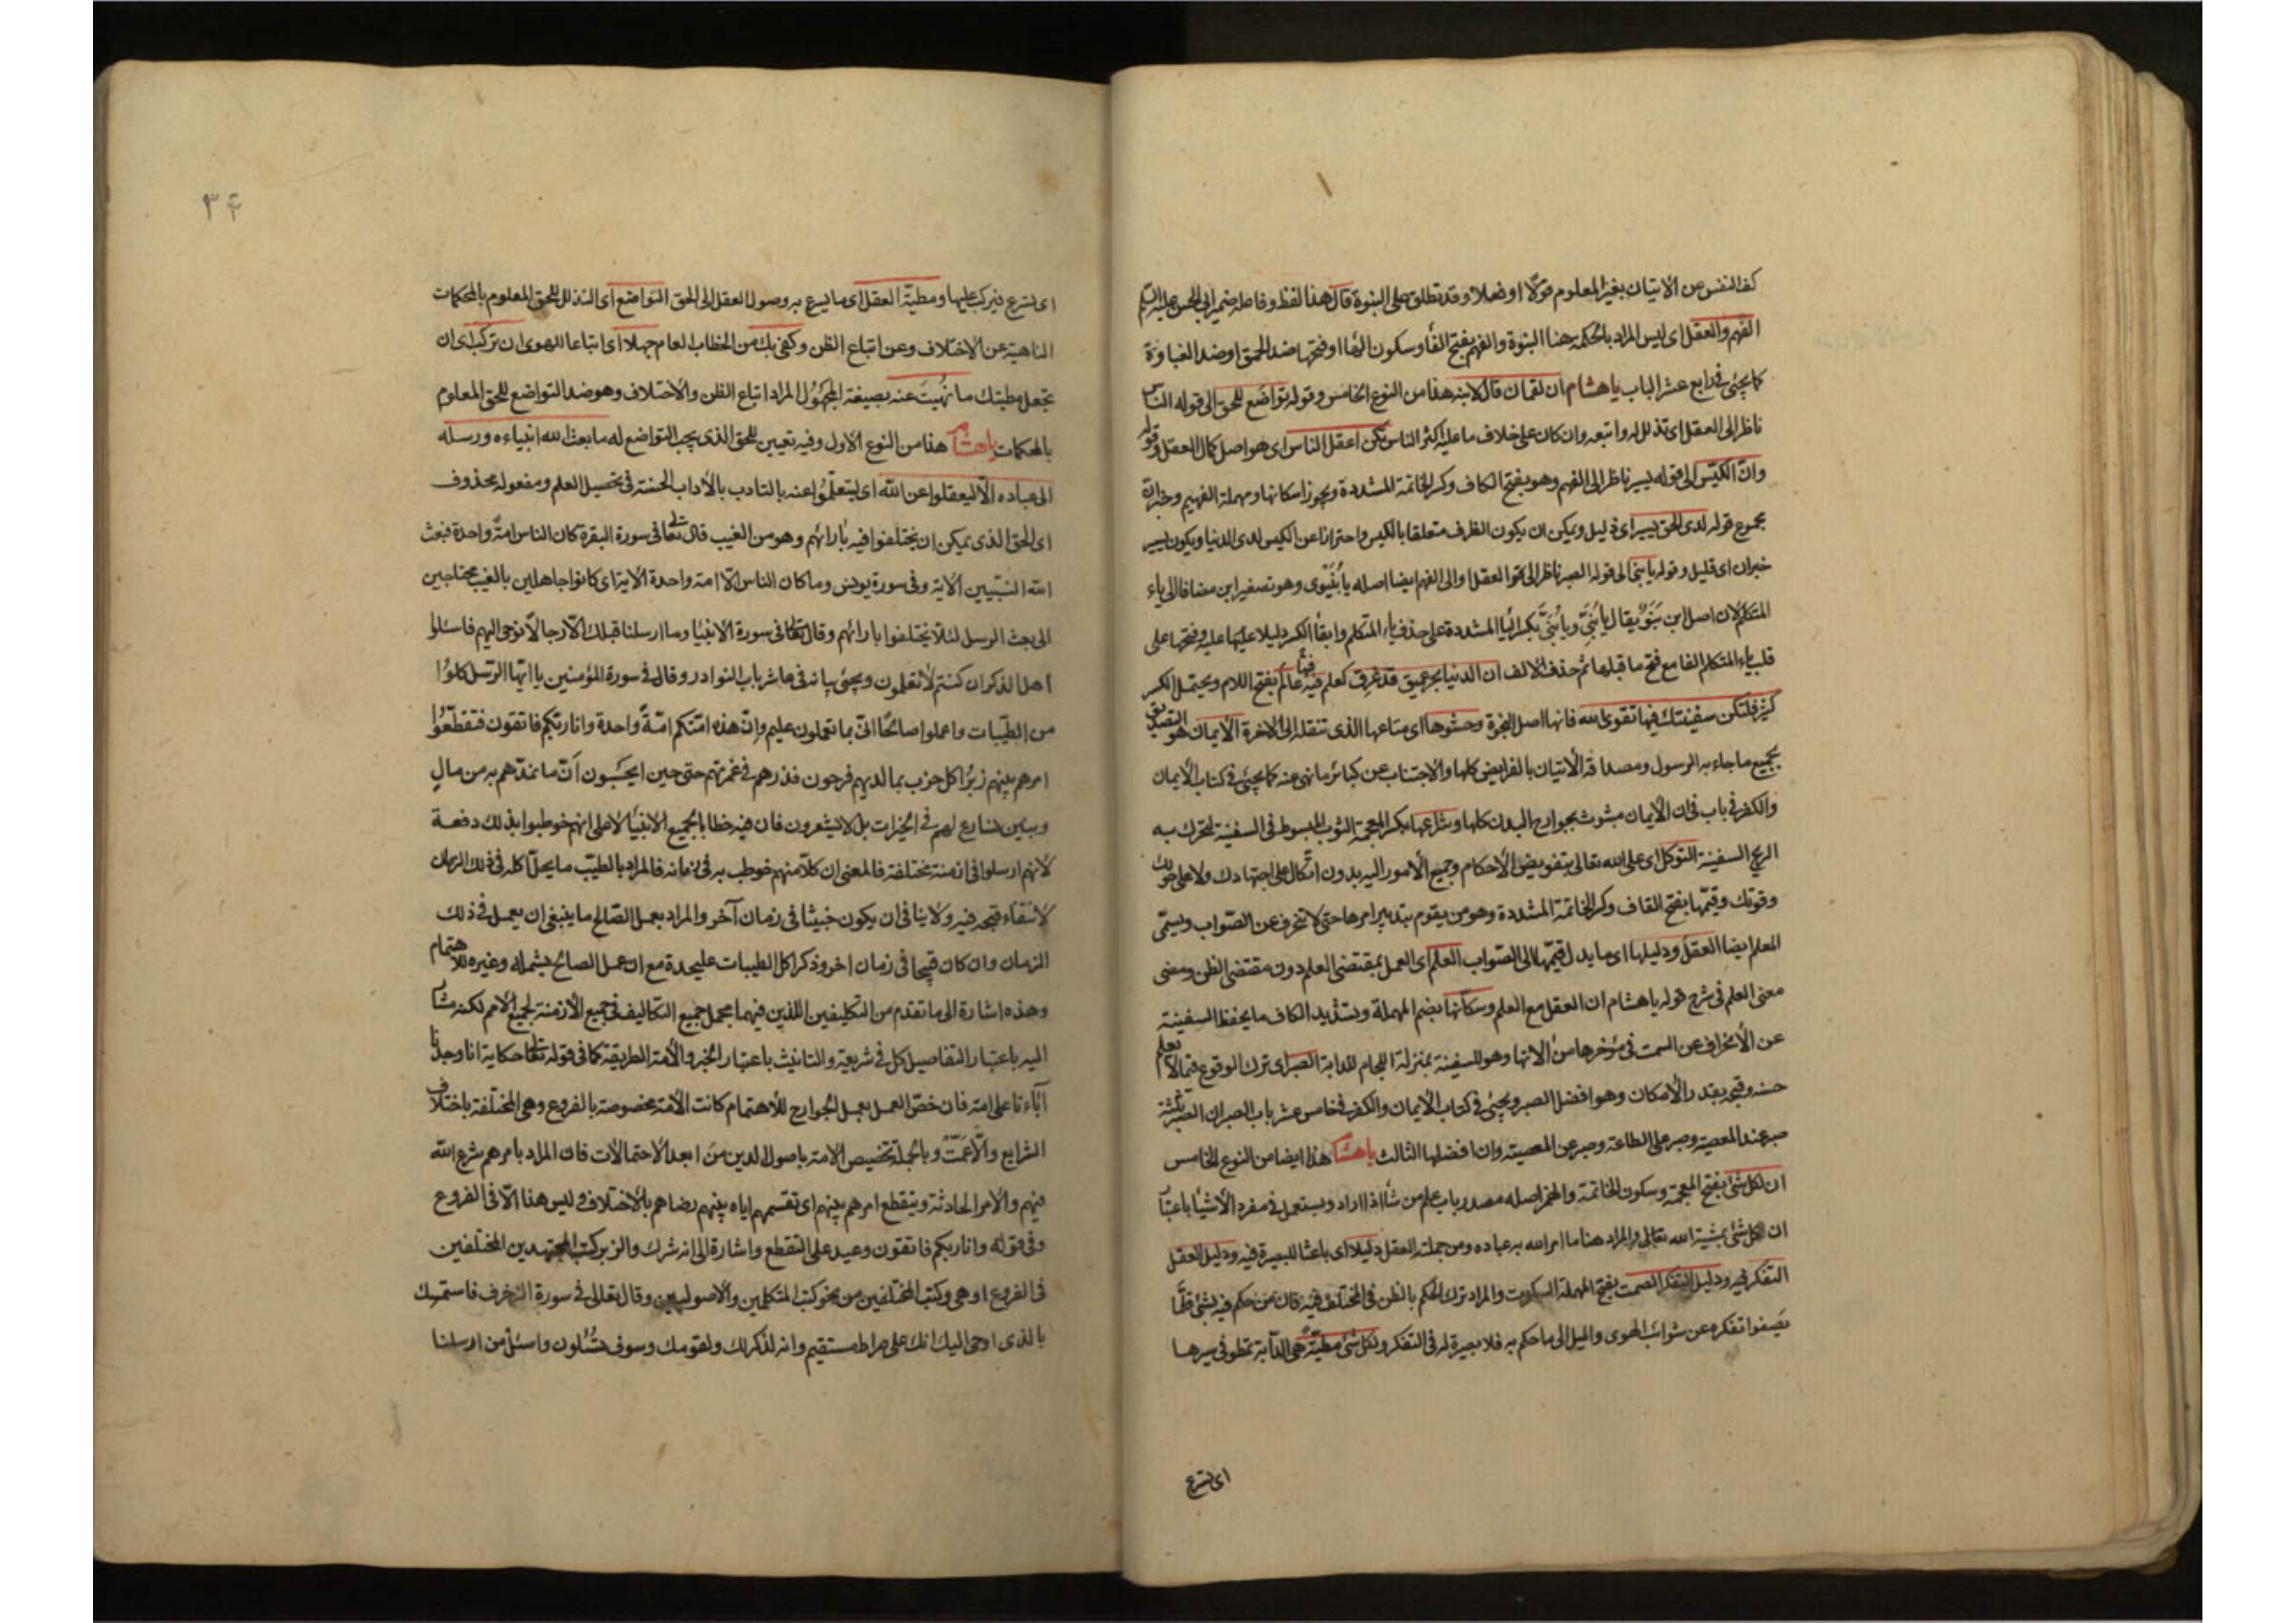 كف النفس عن الاتيان بغير المعلوم قولا او فعلا وقد تطلق على النبوة قال هذا لفظ وفاعله ضمير ابي الحسن عليه السلام
الفهم والعقل اي ليس المراد بالحكمة هنا النبوة والفهم بفتح الفا وسكون الها او فتحها ضد الحمق او ضد الغباوة
كما يجئ في رابع عشر الباب يا هشام ان لقمان قال لابنه هذا من النوع الخامس وقوله تواضع للحق الى قوله الناس
ناظر الى العقل اي تذلل له واتبعه وان كان على خلاف ما عليه اكثر الناس تكن اعقل الناس اي هو اصل كمال العقل وقوله
وان الكيّس الى قوله يسير ناظر الى الفهم وهو بفتح الكاف وكسر الخاتمة المشددة ويجوز اسكانها ومهملة الفهيم وخبر ان
مجموع قوله لدى الحق يسير اي ذليل ويمكن ان يكون الظرف متعلقا بالكيس واحترازا عن الكيس لدى الدنيا ويكون يسير
خبران اي قليل وقوله يا بني الى قوله الصبر ناظر الى العقل والى الفهم ايضا اصله يا بُنَيْوي وهو تصغير ابن مضافا الى ياء
المتكلم لان اصل ابن بَنَوٌ يقال يا بُنَيِّ ويا بُنَيَّ بكسر اليا المشددة على حذف ياء المتكلم وابقا الكسر دليلا عليها وفتحها على
قلب ياء المتكلم الفا مع فتح ما قبلها ثم حذف الالف ان الدنيا بحر عميق قد غرق كعلم فيه فيها عالم بفتح اللام ويحتمل الكسر
كثير فلتكن سفينتك فيها تقوى الله فانها اصل النجاة وحشوها اي متاعها الذي تنقله الى الاخرة الايمان هو التصديق
بجميع ما جاء به الرسول ومصداقه الاتيان بالفرايض كلها والاجتناب عن كبائر ما نهى عنه كما يجئ في كتاب الايمان
والكفر في باب في ان الايمان مبثوث بجوارح البدن كلها وشراعها بكسر المعجمة الثوب المبسوط في السفينة لتحرك به
الريح السفينة التوكل اي على الله تعالى بتفويض الاحكام وجميع الامور اليه بدون اتكال على اجتهادك ولا على حولك
وقوتك وقيّمها بفتح القاف وكسر الخاتمة المشددة وهو من يقوم بتدبير امرها حتى لا تنحرف عن الصواب ويسمّى
المعلم ايضا العقل ودليلها اي ما يدل قيّمها الى الصواب العلم اي العمل بمقتضى العلم دون مقتضى الظن ومضى
معنى العلم في شرح قوله يا هشام ان العقل مع العلم وسكّانها بضم المهملة وتشديد الكاف ما يحفظ السفينة
عن الانحراف عن السمت في مؤخرها من الاتها وهو للسفينة بمنزلة اللجام للدابة الصبر اي ترك الوقوع فيما لا تعلم
حسنه وقبحه بقدر الامكان وهو افضل الصبر ويجئ في كتاب الايمان والكفر في خامس عشر باب الصبر ان الصبر ثلثة
صبر عند المصيبة وصبر على الطاعة وصبر عن المعصية وان افضلها الثالث يا هشام هذا ايضا من النوع الخامس
ان لكل شئ بفتح المعجمة وسكون الخاتمة والهمز اصله مصدر باب علم من شأ اذا اراد ويستعمل في مفرد الاشيا باعتبار
ان الكل شئ بمشية الله تعالى والمراد هنا ما امر الله به عباده ومن جملته العقل دليلا اي باعثا للبصيرة فيه ودليل العقل
التفكر فيه ودليل التفكر الصمت بفتح المهملة السكوت والمراد ترك الحكم بالظن في المختلف فيه فان من حكم فيه بشئ قلّما
يصفوا تفكره عن شوائب الهوى والميل الى ما حكم به فلا بصيرة له في التفكر ولكل شئ مطيّة هي الدابّة تمطو في سيرها
اي تسرع
٣۴
اي تسرع فيركب عليها ومطيّة العقل اي ما يسرع به وصول العقل الى الحق التواضع اي التذلل للحق المعلوم بالمحكمات
الناهية عن الاختلاف وعن اتباع الظن وكفى بك من الخطاب العام جهلا اي اتباعا للهوى ان تركب اي ان
تجعل مطيتك ما نُهيتَ عنه بصيغة المجهول المراد اتباع الظن والاختلاف وهو ضد التواضع للحق المعلوم
بالمحكمات يا هشام هذا من النوع الاول وفيه تعيين للحق الذي يجب التواضع له ما بعث الله انبياءه ورسله
الى عباده الّا ليعقلوا عن الله اي ليتعلّموا عنه بالتادب بالآداب الحسنة في تحصيل العلم ومفعوله محذوف
اي الحق الذي يمكن ان يختلفوا فيه بارائهم وهو من الغيب قال تعالى في سورة البقرة كان الناس امة واحدة فبعث
الله النبيين الاية وفي سورة يونس وما كان الناس الا امة واحدة الاية اي كانوا جاهلين بالغيب محتاجين
الى بعث الرسل لئلا يختلفوا بارائهم وقال تعالى في سورة الانبيا وما ارسلنا قبلك الا رجالا نوحي اليهم فاسئلوا
اهل الذكر ان كنتم لا تعلمون ويجئ بيانه في عاشر باب النوادر وقال في سورة المؤمنين يا ايها الرسل كلوا
من الطيّبات واعملوا صالحا انّي بما تعملون عليم وانّ هذه امتكم امّةً واحدة وانا ربكم فاتقون فتقطّعُوا
امرهم بينهم زبُرًا كل حزب بما لديهم فرحون فذرهم في غمرتهم حتى حين ايحسَبون انّ ما نمدّهم به من مالٍ
وبنين نسارع لهم في الخيرات بل لا يشعرون فان فيه خطابا لجميع الانبيا لا على انهم خوطبوا بذلك دفعة
لانهم ارسلوا في ازمنة مختلفة فالمعنى ان كلا منهم خوطب به في زمانه فالمراد بالطيّب ما يحل اكله في ذلك الزمان
لانتفاء قبحه فيه ولا ينافي ان يكون خبيثا في زمان آخر والمراد بعمل الصّالح ما ينبغي ان يعمل في ذلك
الزمان وان كان قبيحا في زمان اخر وذكر اكل الطيبات عليحدة مع ان عمل الصالح يشمله وغيره للاهتمام
وهذه اشارة الى ما تقدم من التكليفين اللذين فيهما مجمل جميع التكاليف في جميع الازمنة لجميع الامم لكنه مشار
اليه باعتبار التفاصيل كل في شريعة والتانيث باعتبار الخبر والامة الطريقة كما في قوله تعالى حكاية انا وجدنا
آباءنا على امة فان خصّ العمل بعمل الجوارح للاهتمام كانت الامة مخصوصة بالفروع وهي المختلفة باختلاف
الشرايع والّا عَمّتْ وبالجملة تخصيص الامة باصول الدين من ابعد الاحتمالات فان المراد بامرهم شرع الله
فيهم والامر الحادثة وبتقطع امرهم بينهم اي تقسمهم اياه بينهم رضاهم بالاختلاف وليس هذا الّا في الفروع
وفي قوله وانا ربكم فاتقون وعيد على التقطع واشارة الى انه شرك والزبر كتب المجتهدين المختلفين
في الفروع او هي وكتب المختلفين من نحو كتب المتكلمين والاصوليين وقال تعالى في سورة الزخرف فاستمسك
بالذي اوحي اليك انك على صراط مستقيم وانه لذكر لك ولقومك وسوف تسُئلون واسئل من ارسلنا